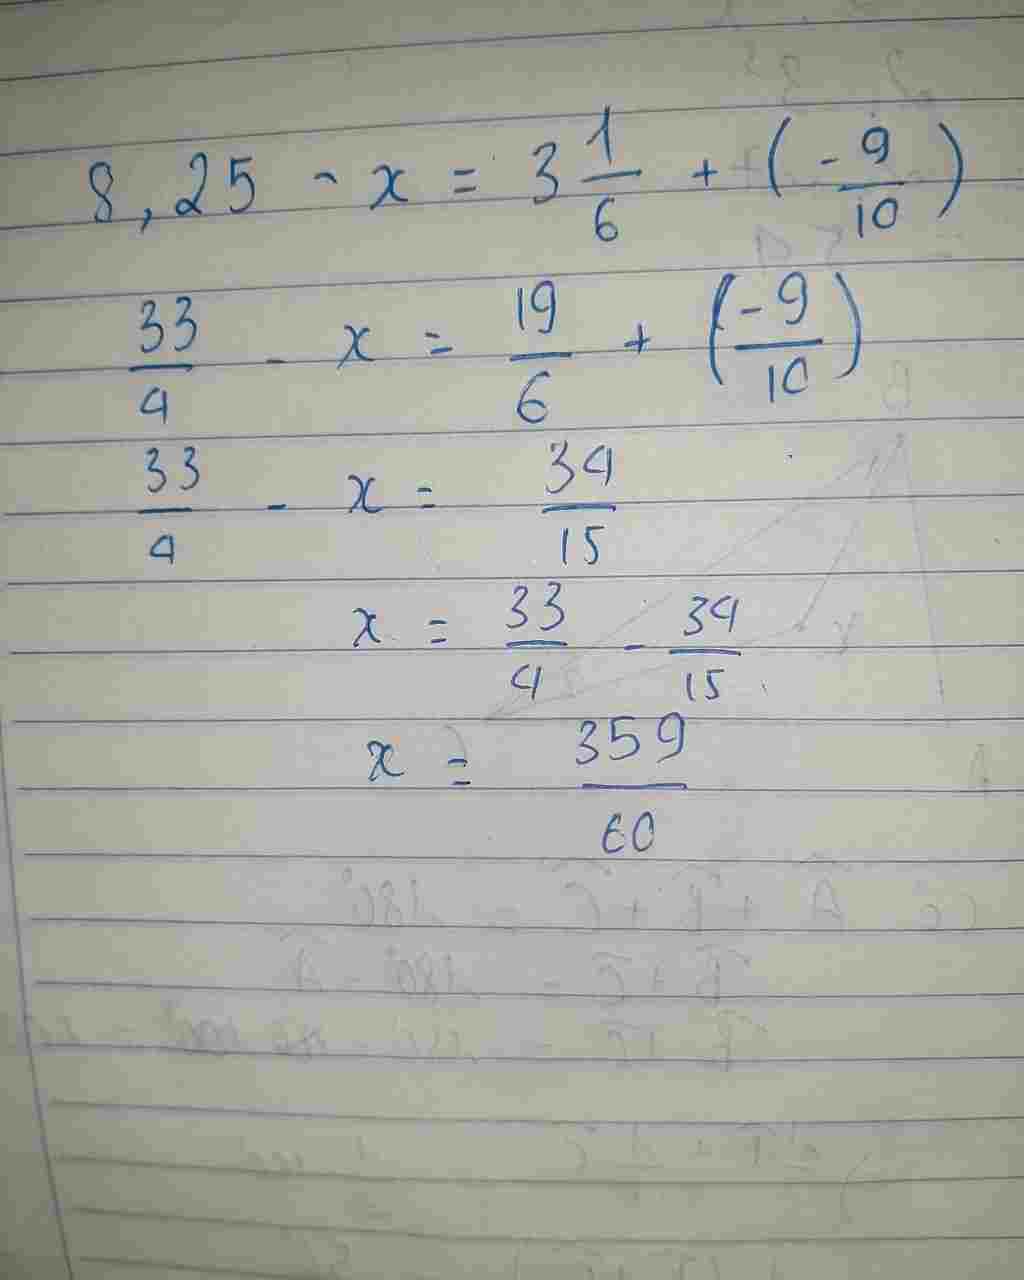 8,25 - x = 3 1/6 + (-9/10)
33/4 - x = 19/6 + (-9/10)
33/4 - x = 34/15
x = 33/4 - 34/15
x = 359/60